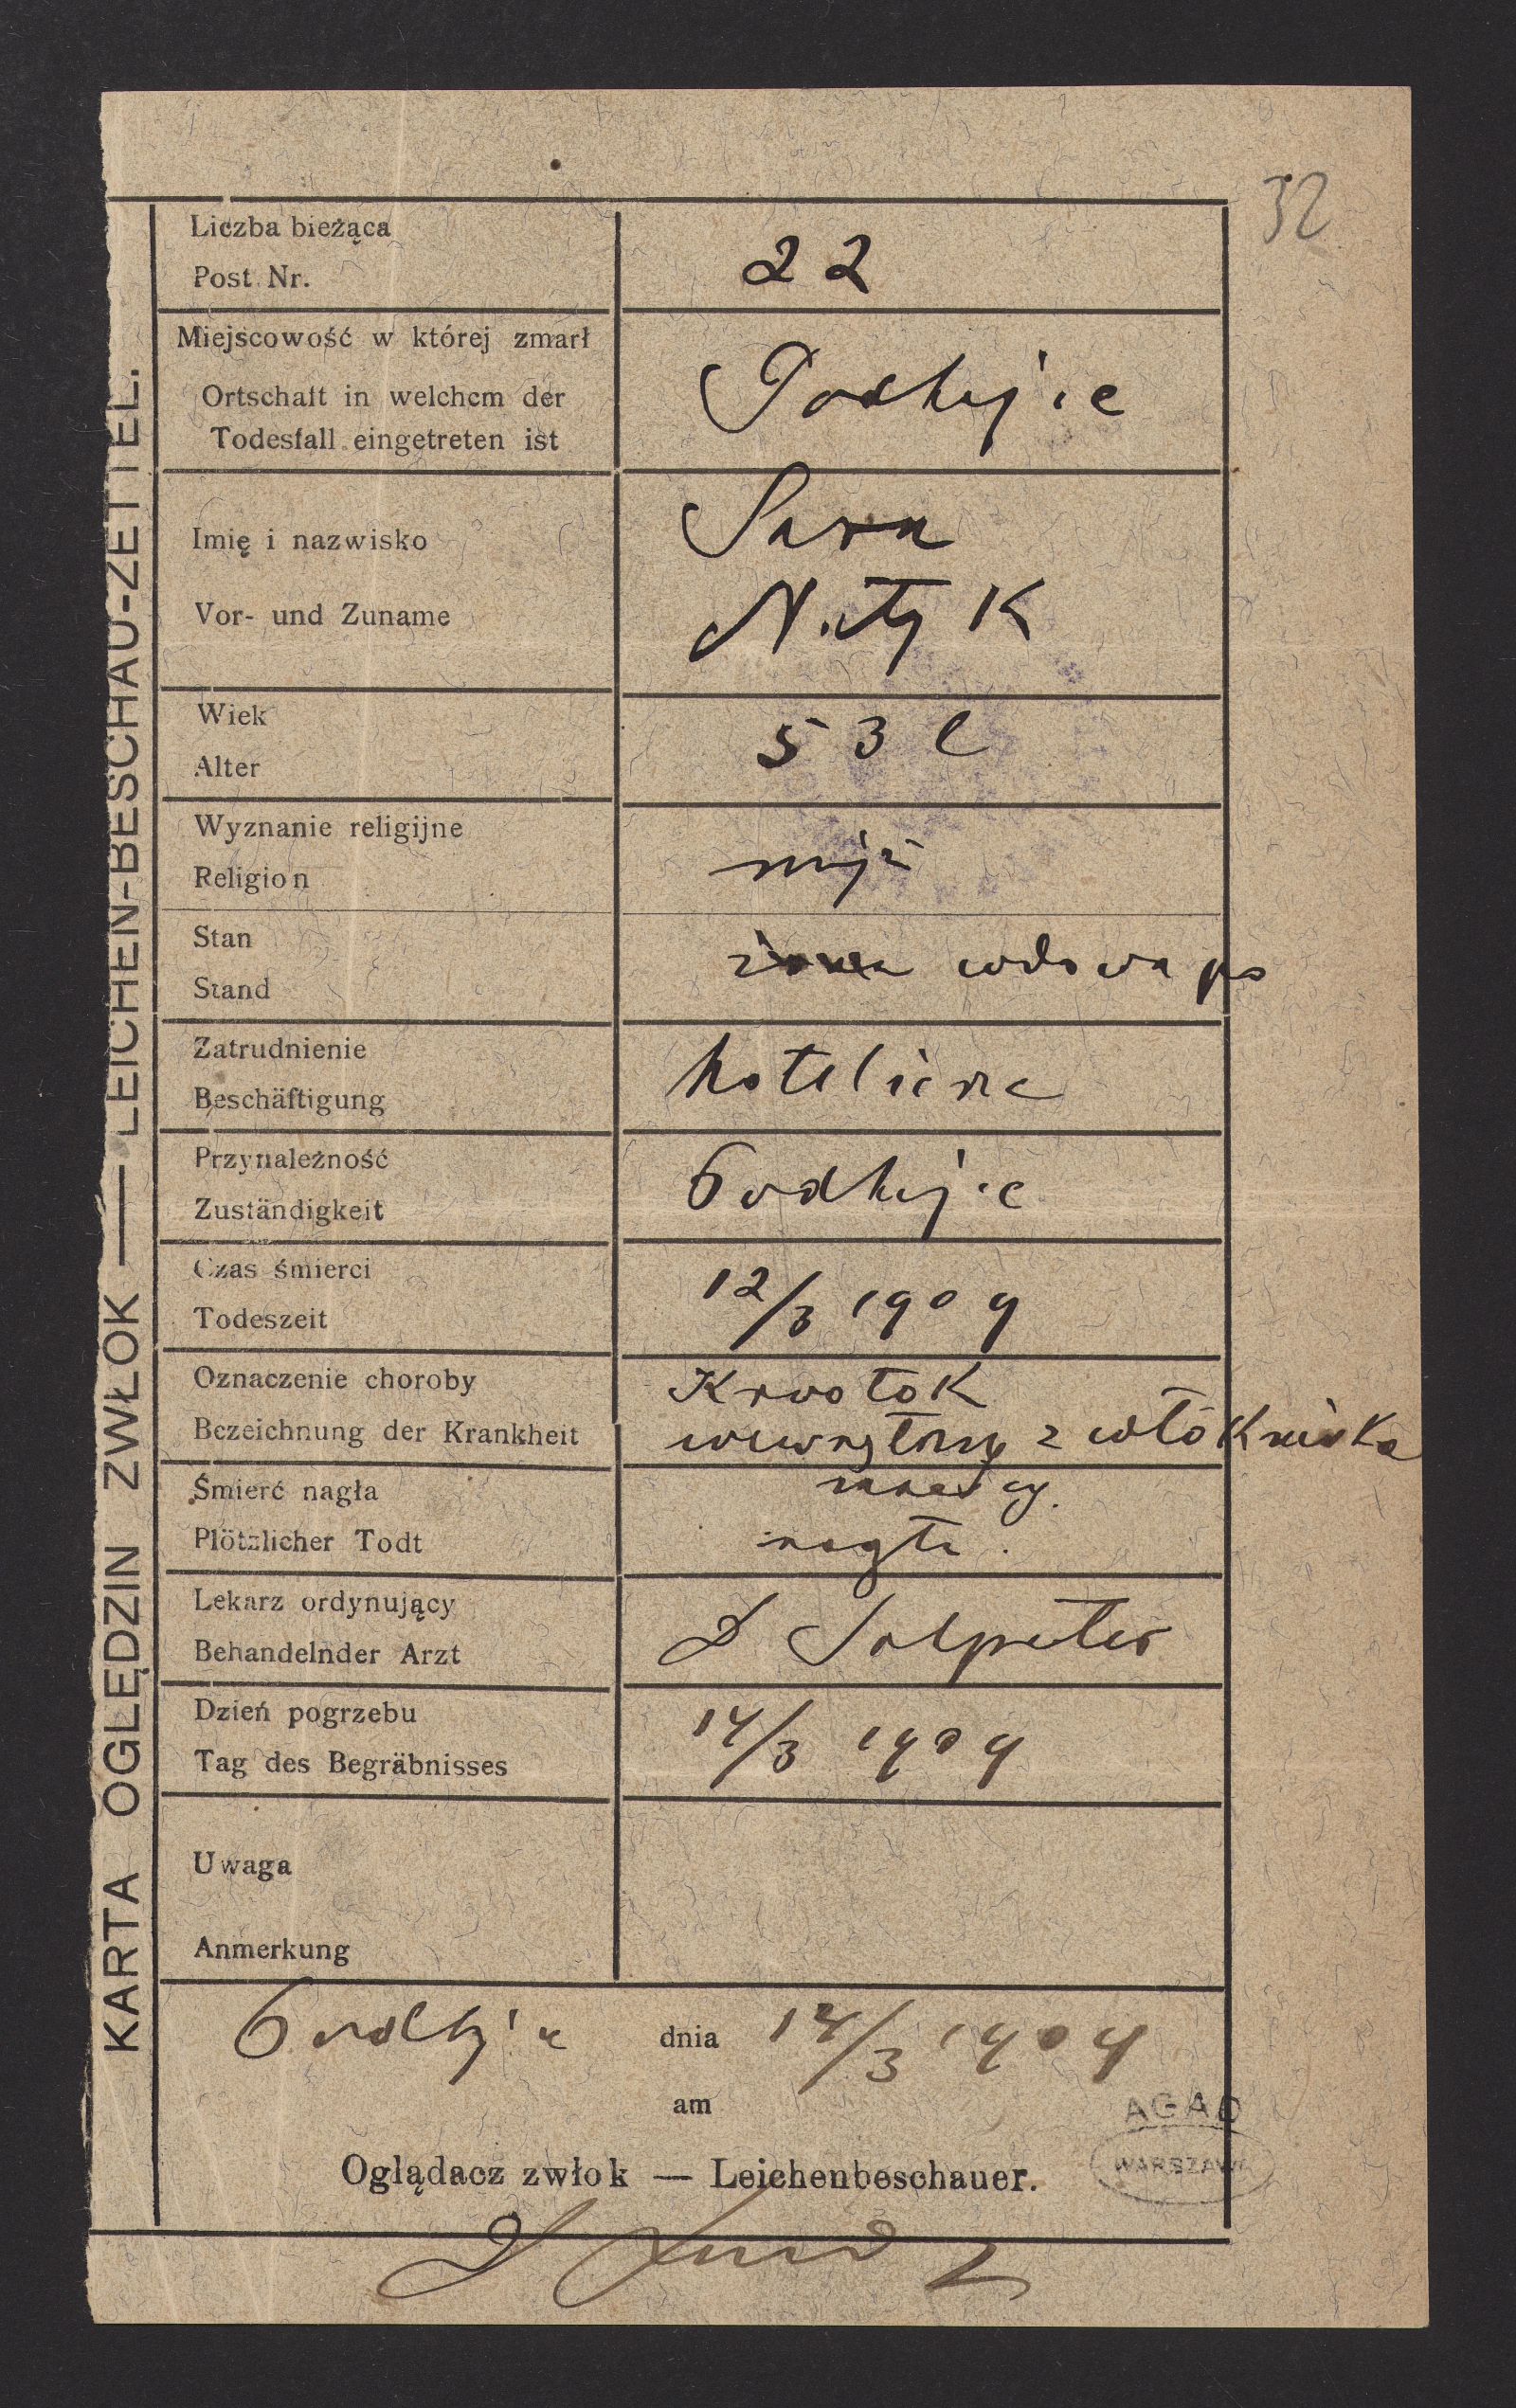 32
KARTA OGLĘDZIN ZWŁOK — LEICHEN-BESCHAU-ZETTEL.
Liczba bieżąca
Post Nr.
22
Miejscowość w której zmarł
Ortschaft in welchem der
Todesfall eingetreten ist
Podhajce
Imię i nazwisko
Vor- und Zuname
Sara
Wiek
Alter
53 l
Wyznanie religijne
Religion
mojż
Stan
Stand
żona wdowa po
Zatrudnienie
Beschäftigung
hotelierze
Przynależność
Zuständigkeit
Podhajce
Czas śmierci
Todeszeit
12/3 1909
Oznaczenie choroby
Bezeichnung der Krankheit
Krwotok
wewnętrzny z włókniaka
macicy.
Śmierć nagła
Plötzlicher Todt
nagła.
Lekarz ordynujący
Behandelnder Arzt
D Salpeter
Dzień pogrzebu
Tag des Begräbnisses
14/3 1909
Uwaga
Anmerkung
Podhajce dnia 14/3 1909
am
Oglądacz zwłok — Leichenbeschauer.
AGAD
WARSZAWA